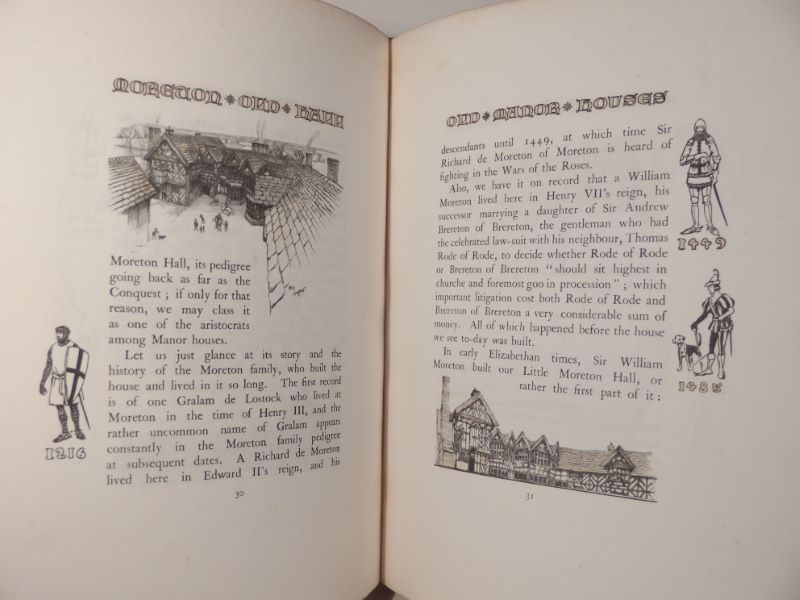 MORETON * OLD * HALL
Moreton Hall, its pedigree
going back as far as the
Conquest ; if only for that
reason, we may class it
as one of the aristocrats
among Manor houses.
Let us just glance at its story and the
history of the Moreton family, who built the
house and lived in it so long. The first record
is of one Gralam de Lostock who lived at
Moreton in the time of Henry III, and the
rather uncommon name of Gralam appears
constantly in the Moreton family pedigree
at subsequent dates. A Richard de Moreton
lived here in Edward II's reign, and his
1216
30
OLD * MANOR * HOUSES
descendants until 1449, at which time Sir
Richard de Moreton of Moreton is heard of
fighting in the Wars of the Roses.
Also, we have it on record that a William
Moreton lived here in Henry VII's reign, his
successor marrying a daughter of Sir Andrew
Brereton of Brereton, the gentleman who had
the celebrated law-suit with his neighbour, Thomas
Rode of Rode, to decide whether Rode of Rode
or Brereton of Brereton "should sit highest in
churche and foremost goo in procession" ; which
important litigation cost both Rode of Rode and
Brereton of Brereton a very considerable sum of
money. All of which happened before the house
we see to-day was built.
In early Elizabethan times, Sir William
Moreton built our Little Moreton Hall, or
rather the first part of it :
1449
1485
31